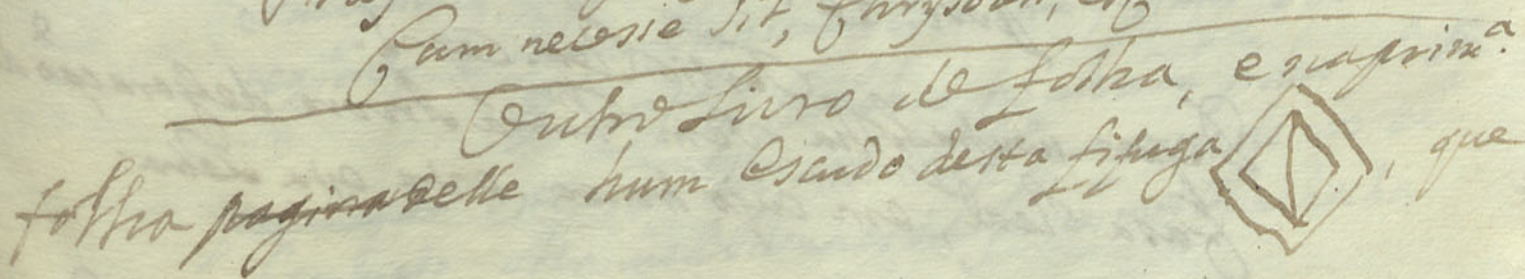 Cum necesse sit,
Outro Livro de folha, e na prim.ª
folha pagina delle hum Escudo desta fifuga , que